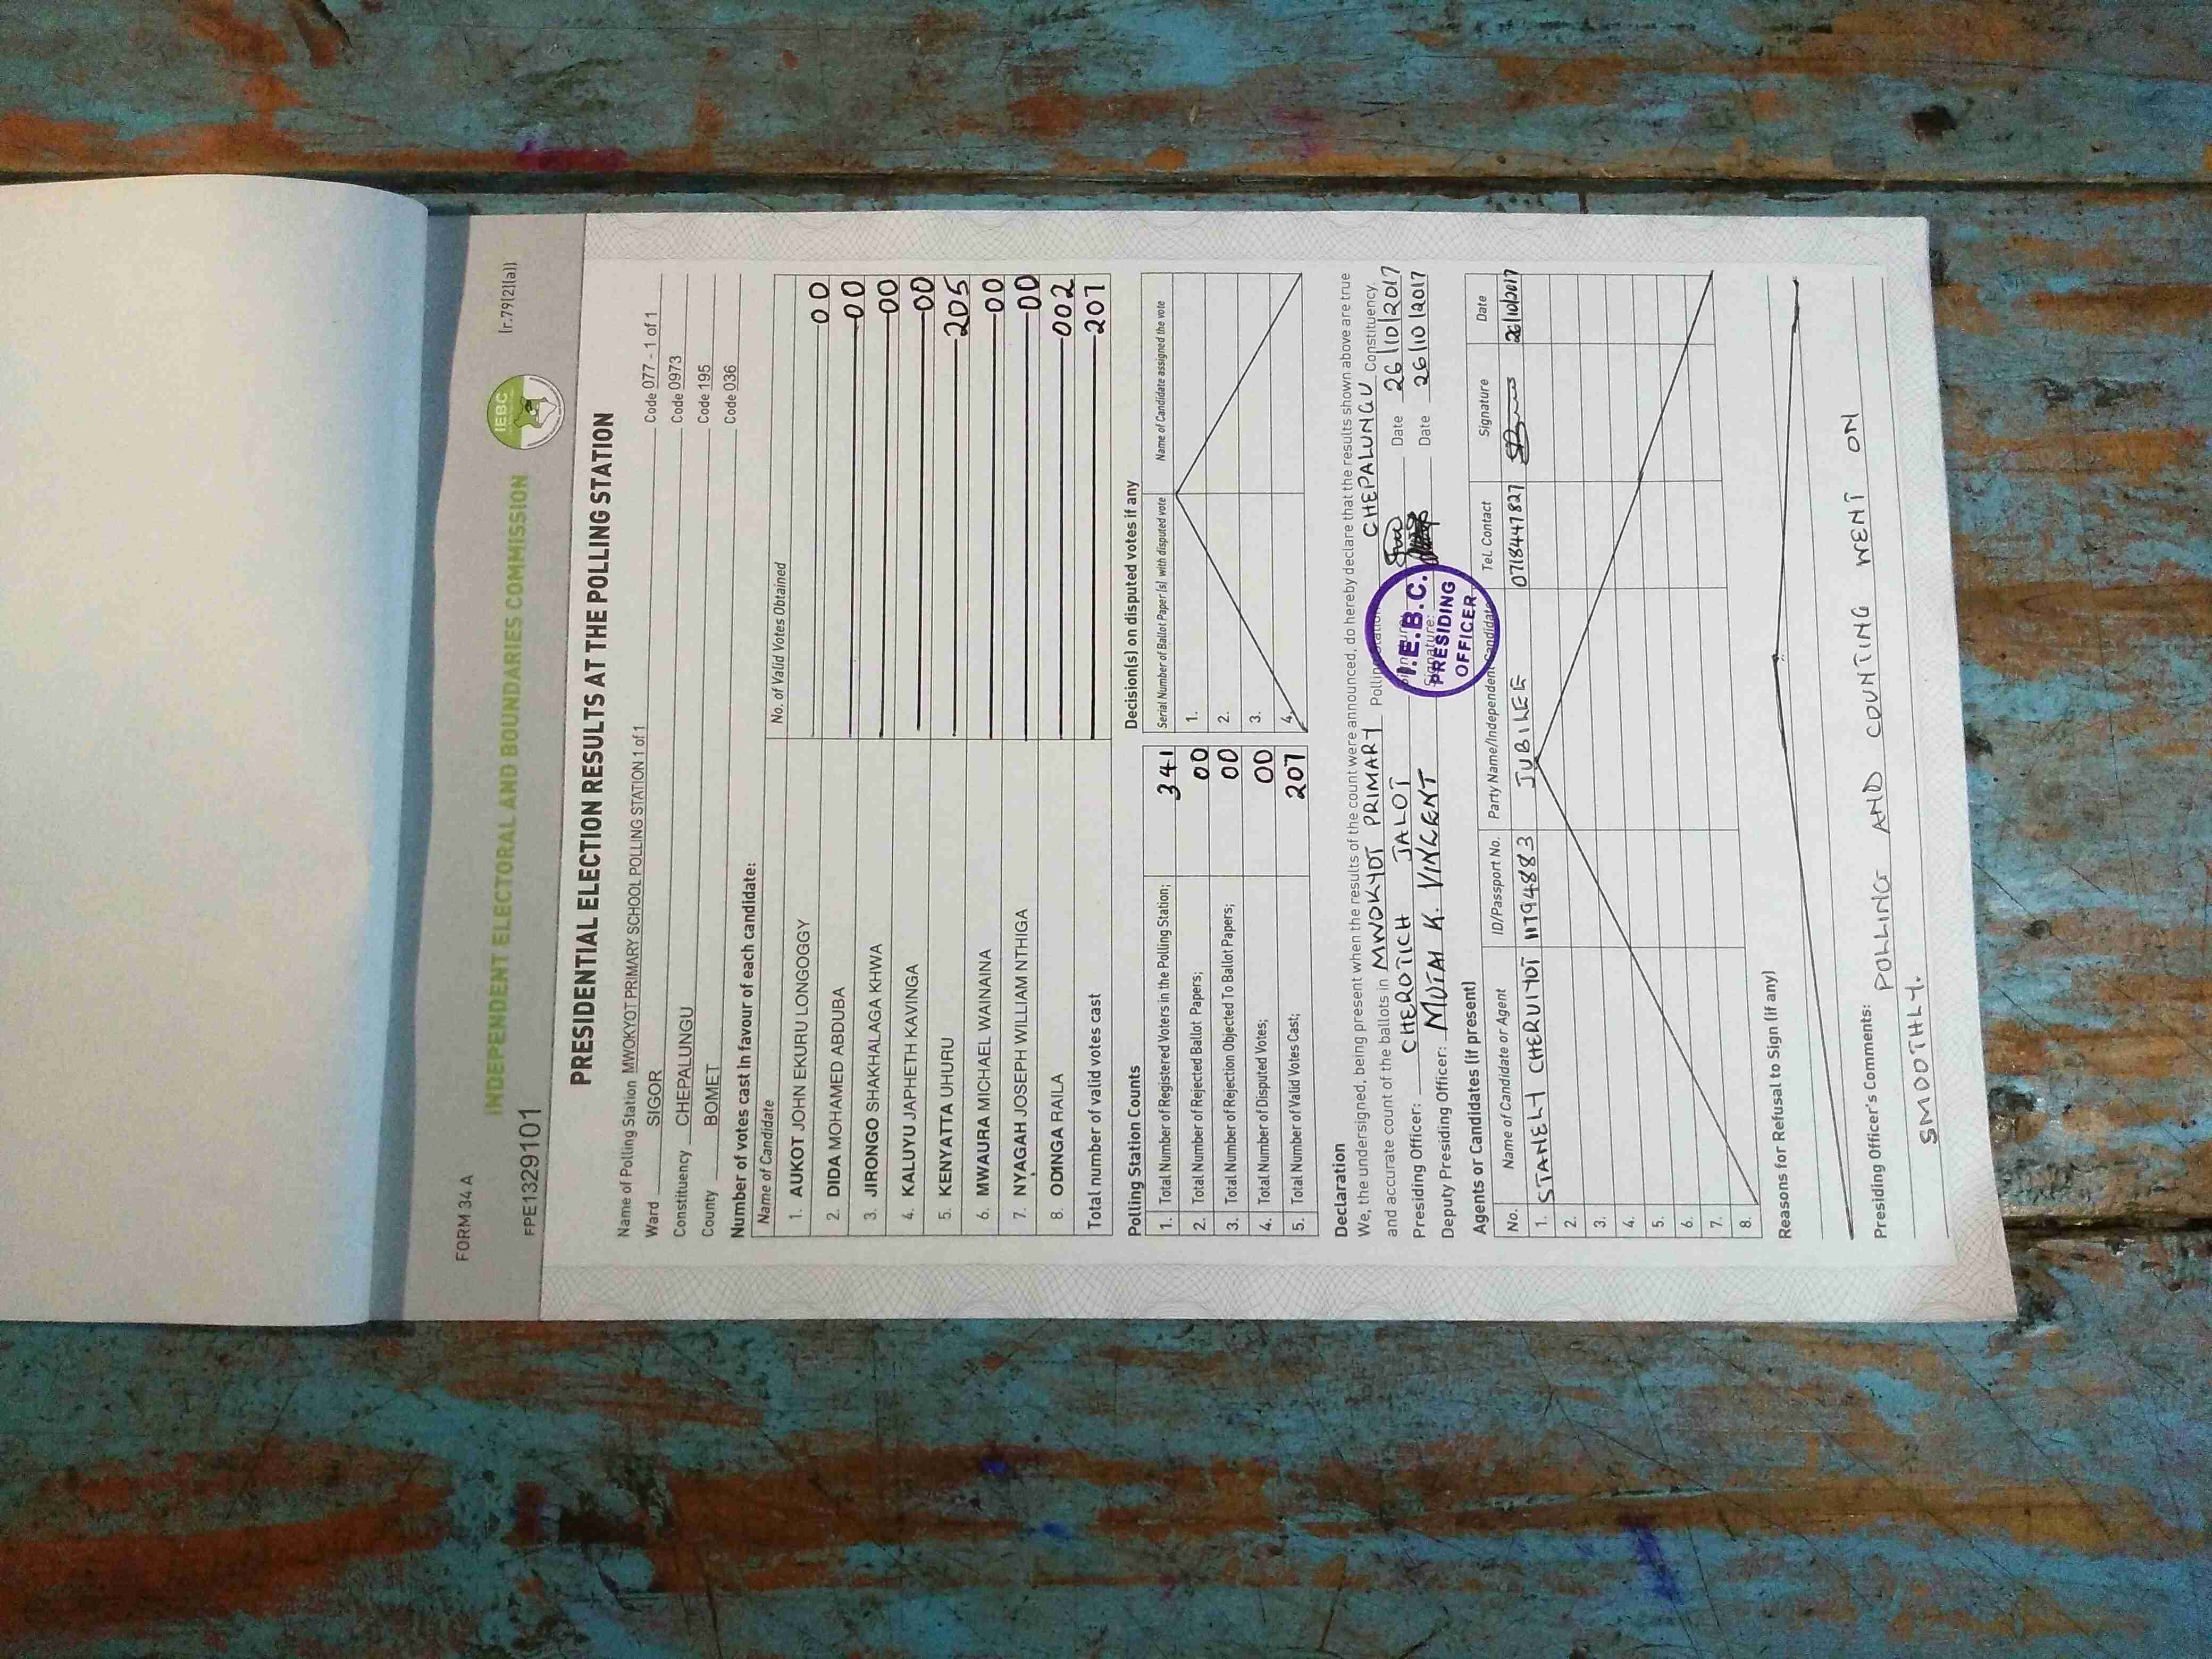 FORM 34 A
(r.79(2)(a))
INDEPENDENT ELECTORAL AND BOUNDARIES COMMISSION
IEBC
FPE1329101
PRESIDENTIAL ELECTION RESULTS AT THE POLLING STATION
Name of Polling Station MWOKYOT PRIMARY SCHOOL POLLING STATION 1 of 1 Code 077 - 1 of 1
Ward SIGOR Code 0973
Constituency CHEPALUNGU Code 195
County BOMET Code 036
Number of votes cast in favour of each candidate:
Name of Candidate No. of Valid Votes Obtained
1. AUKOT JOHN EKURU LONGOGGY 00
2. DIDA MOHAMED ABDUBA 00
3. JIRONGO SHAKHALAGA KHWA 00
4. KALUYU JAPHETH KAVINGA 00
5. KENYATTA UHURU 205
6. MWAURA MICHAEL WAINAINA 00
7. NYAGAH JOSEPH WILLIAM NTHIGA 00
8. ODINGA RAILA 002
Total number of valid votes cast 207
Polling Station Counts
1. Total Number of Registered Voters in the Polling Station; 341
2. Total Number of Rejected Ballot Papers; 00
3. Total Number of Rejection Objected To Ballot Papers; 00
4. Total Number of Disputed Votes; 00
5. Total Number of Valid Votes Cast; 207
Decision(s) on disputed votes if any
Serial Number of Ballot Paper(s) with disputed vote Name of Candidate assigned the vote
1.
2.
3.
4.
Declaration
We, the undersigned, being present when the results of the count were announced, do hereby declare that the results shown above are true
and accurate count of the ballots in MWOKYOT PRIMARY Polling Station, CHEPALUNGU Constituency.
Presiding Officer: CHEROTICH JALOT Signature: Date 26/10/2017
Deputy Presiding Officer: MUTAI K. VINCENT Signature: Date 26/10/2017
I.E.B.C.
PRESIDING
OFFICER
Agents or Candidates (if present)
No. Name of Candidate or Agent ID/Passport No. Party Name/Independent Candidate Tel. Contact Signature Date
1. STANELY CHERUIYOT 11794883 JUBILEE 0718447827 26/10/2017
2.
3.
4.
5.
6.
7.
8.
Reasons for Refusal to Sign (if any)
Presiding Officer's Comments: POLLING AND COUNTING WENT ON
SMOOTHLY.